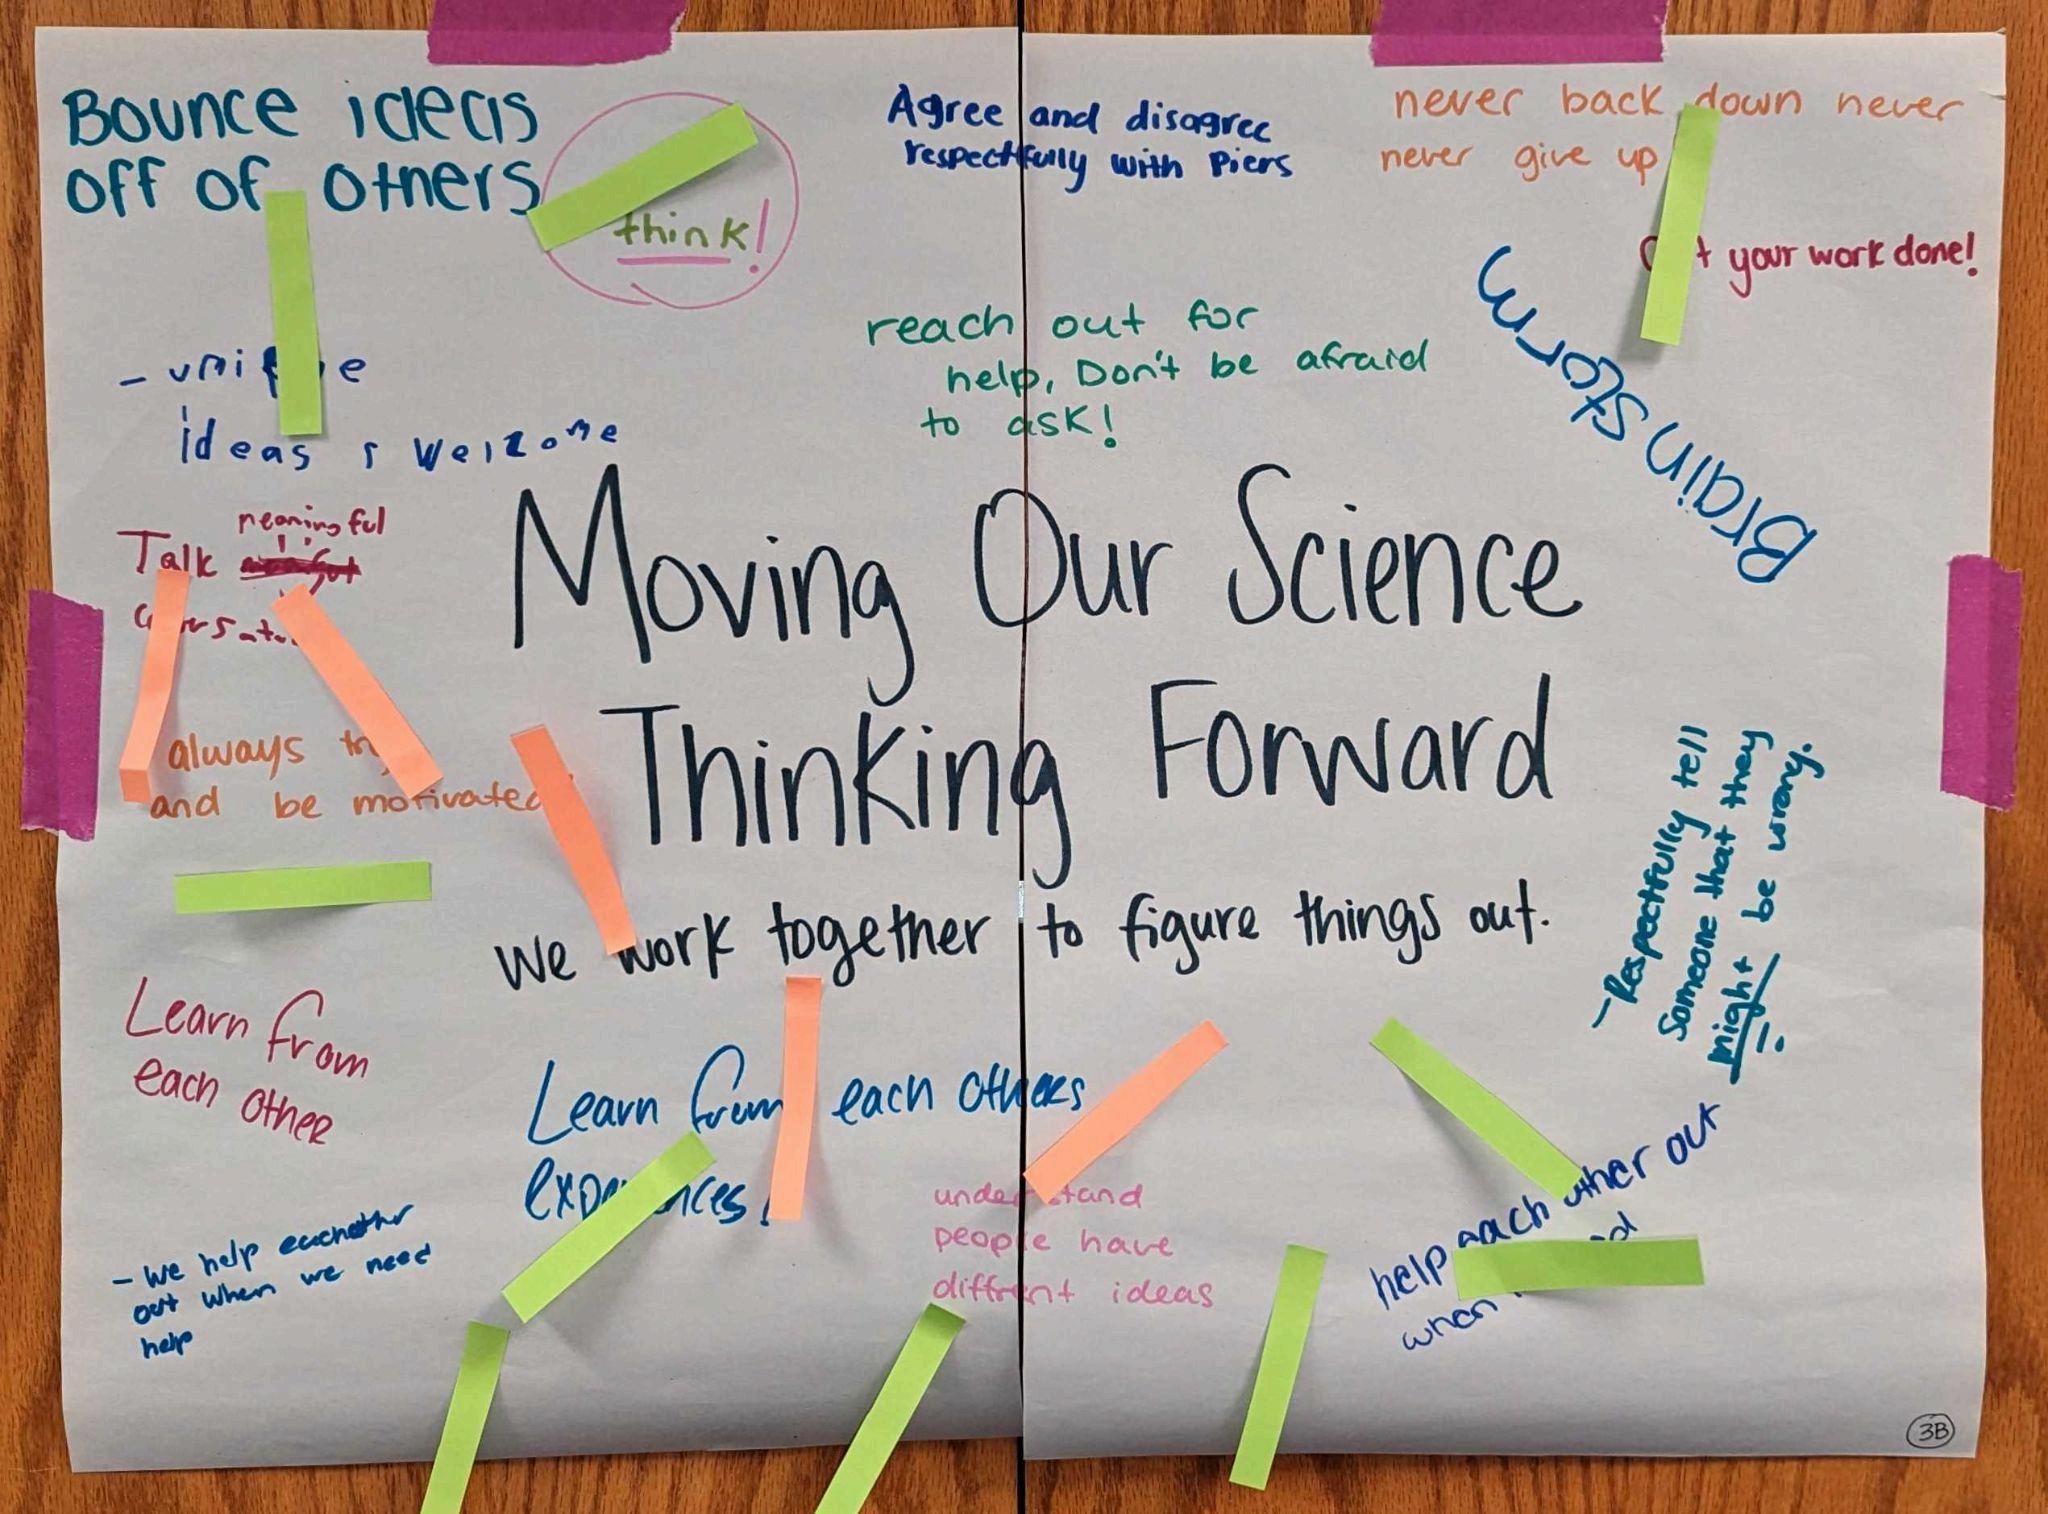 Bounce ideas
off of others
think!
Agree and disagree
respectfully with Piers
never back down never
never give up
your work done!
Brain storm
reach out for
help, Don't be afraid
to ask!
ideas r welcome
Talk meaningful
always
and be motivated
Moving Our Science
Thinking Forward
we work together to figure things out.
- Respectfully tell
Someone that they
might be wrong.
Learn from
each other
Learn from each others
people have
different ideas
- We help eachother
out when we need
help
help each other out
when
3B